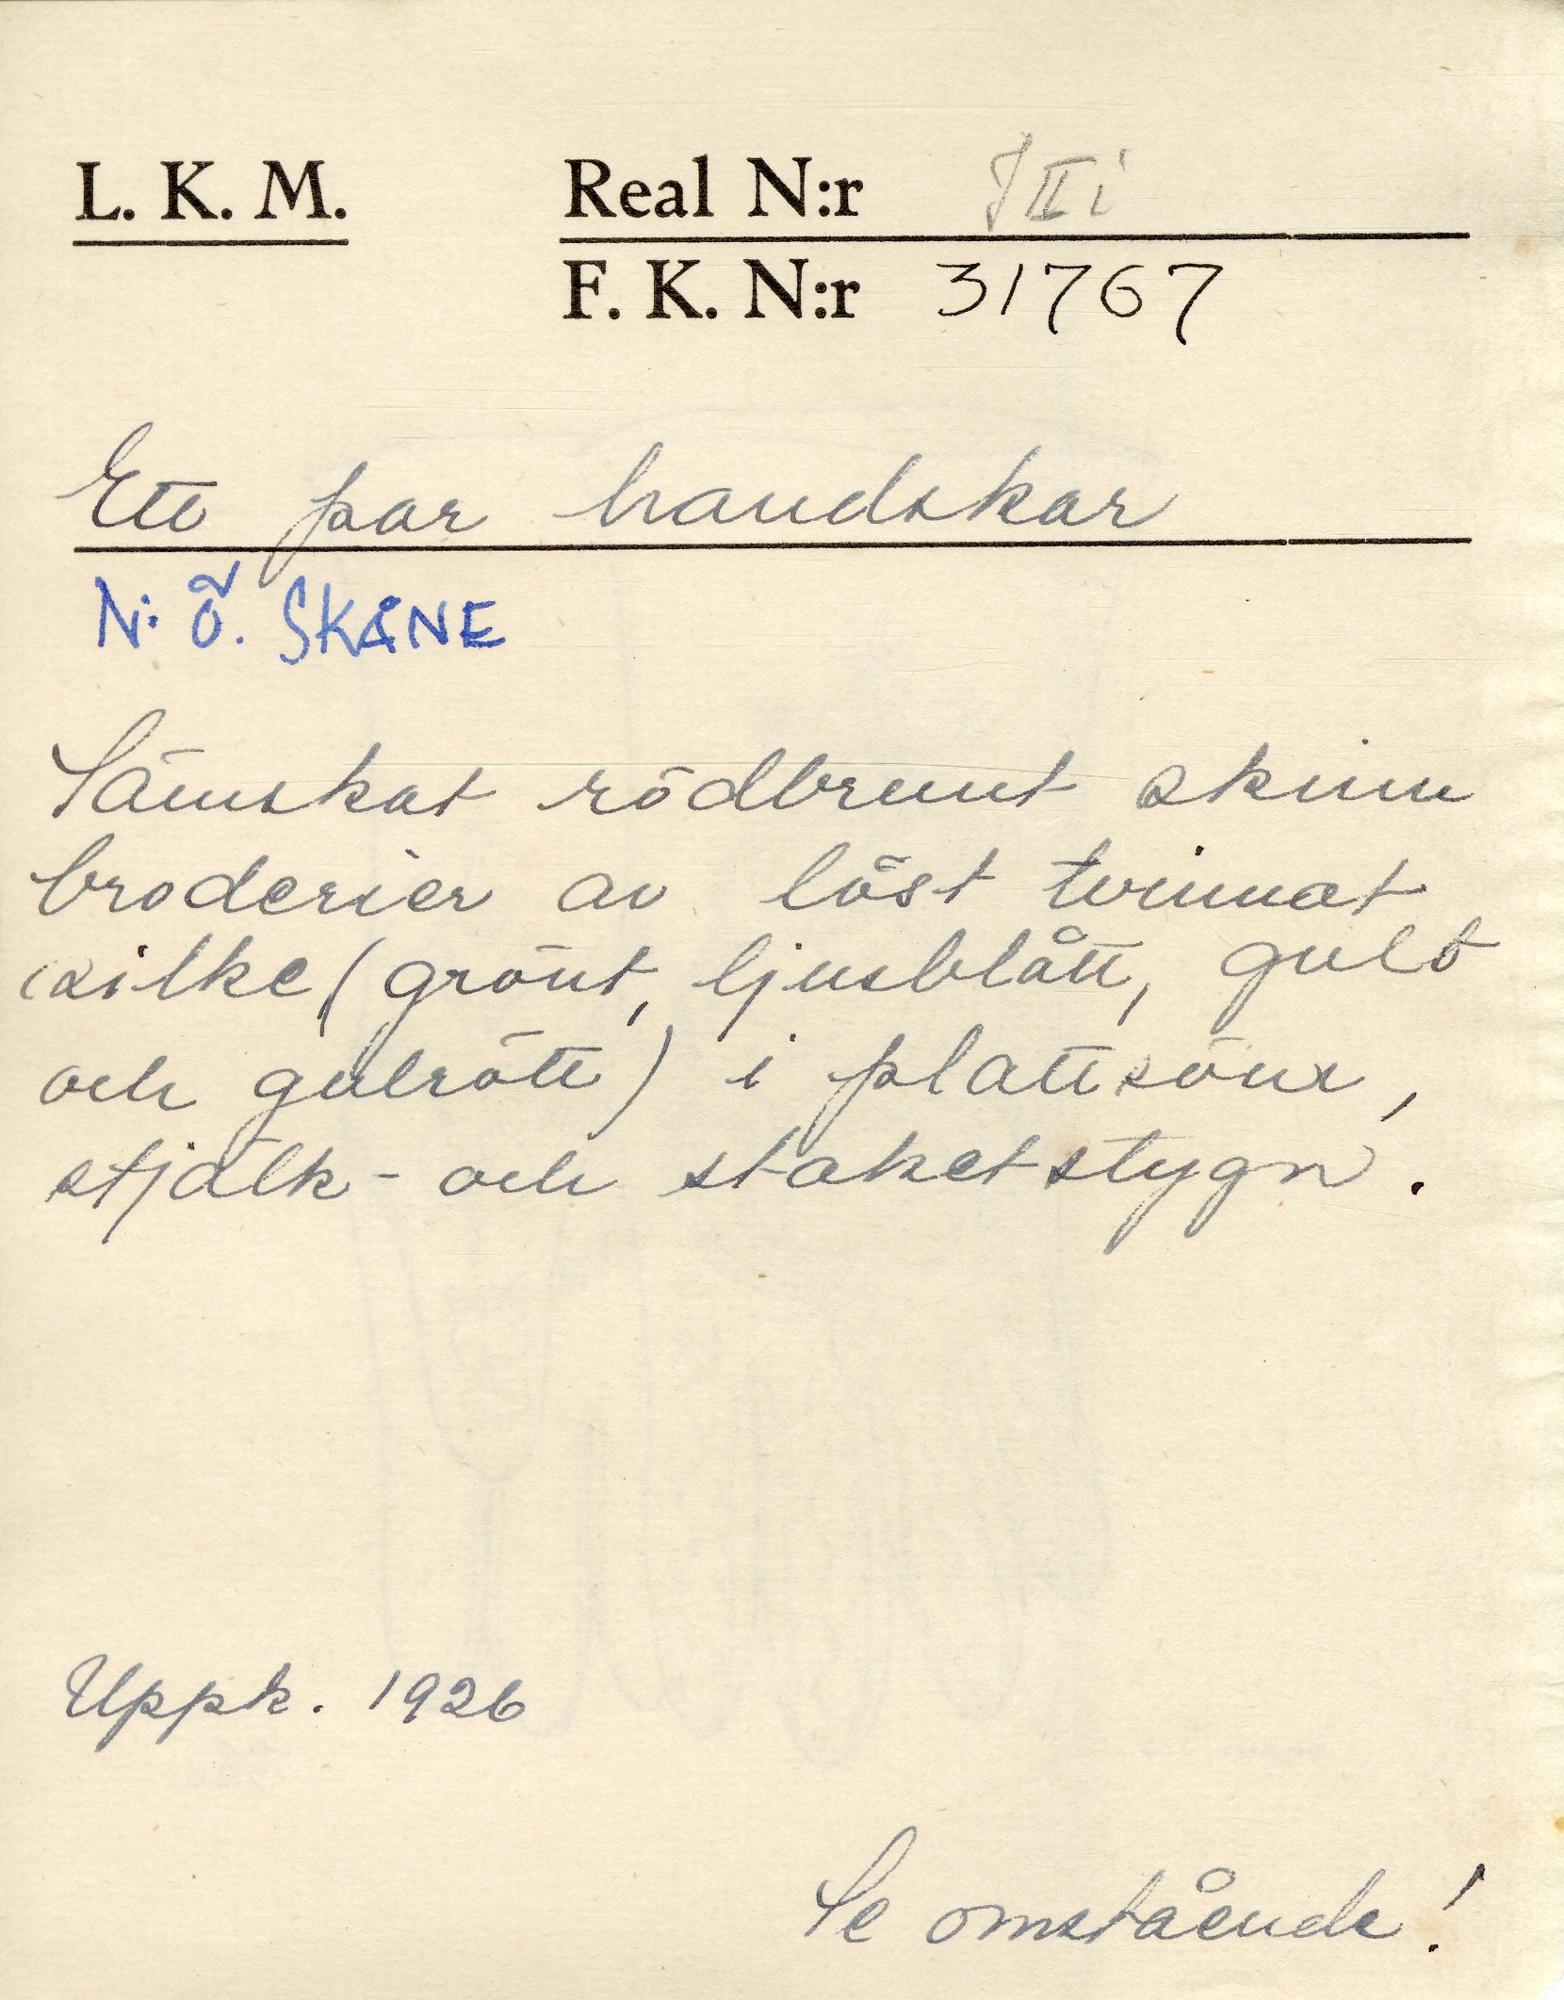 L. K. M. Real N:r J II i
F. K. N:r 31767
Ett par handskar
N. Ö. SKÅNE
Sämskat rödbrunt skinn
broderier av löst tvinnat
silke (grönt, ljusblått, gult
och gulrött) i plattsöm,
stjälk- och staketstygn.
Uppk. 1926
Se omstående!